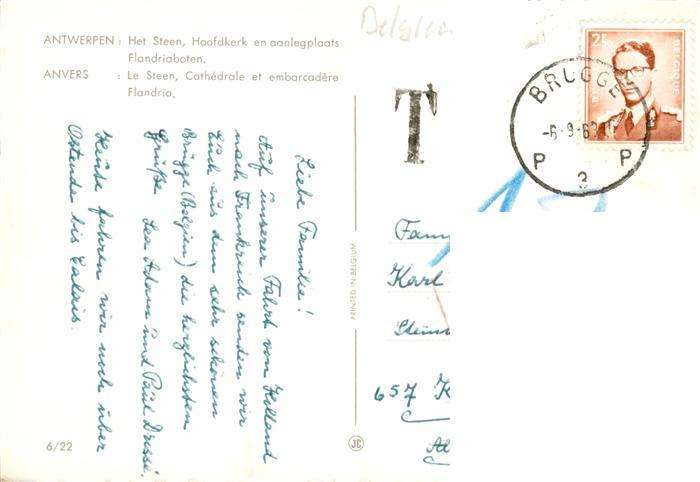 ANTWERPEN : Het Steen, Hoofdkerk en aanlegplaats
Flandriaboten.
ANVERS : Le Steen, Cathédrale et embarcadère
Flandria.
Belgien
T
2F
BELGIQUE
BRUGGE
-6-9-6
P P
3
Liebe Familie!
Auf unserer Fahrt von Holland
nach Frankreich senden wir
Euch aus dem sehr schönen
Brügge (Belgien) die herzlichsten
Grüße Lea Adam und Paul
Heute fahren wir noch über
Ostende bis Calais.
PRINTED IN BELGIUM
Fam
Karl
Stein
657 K
Al
6/22
JC